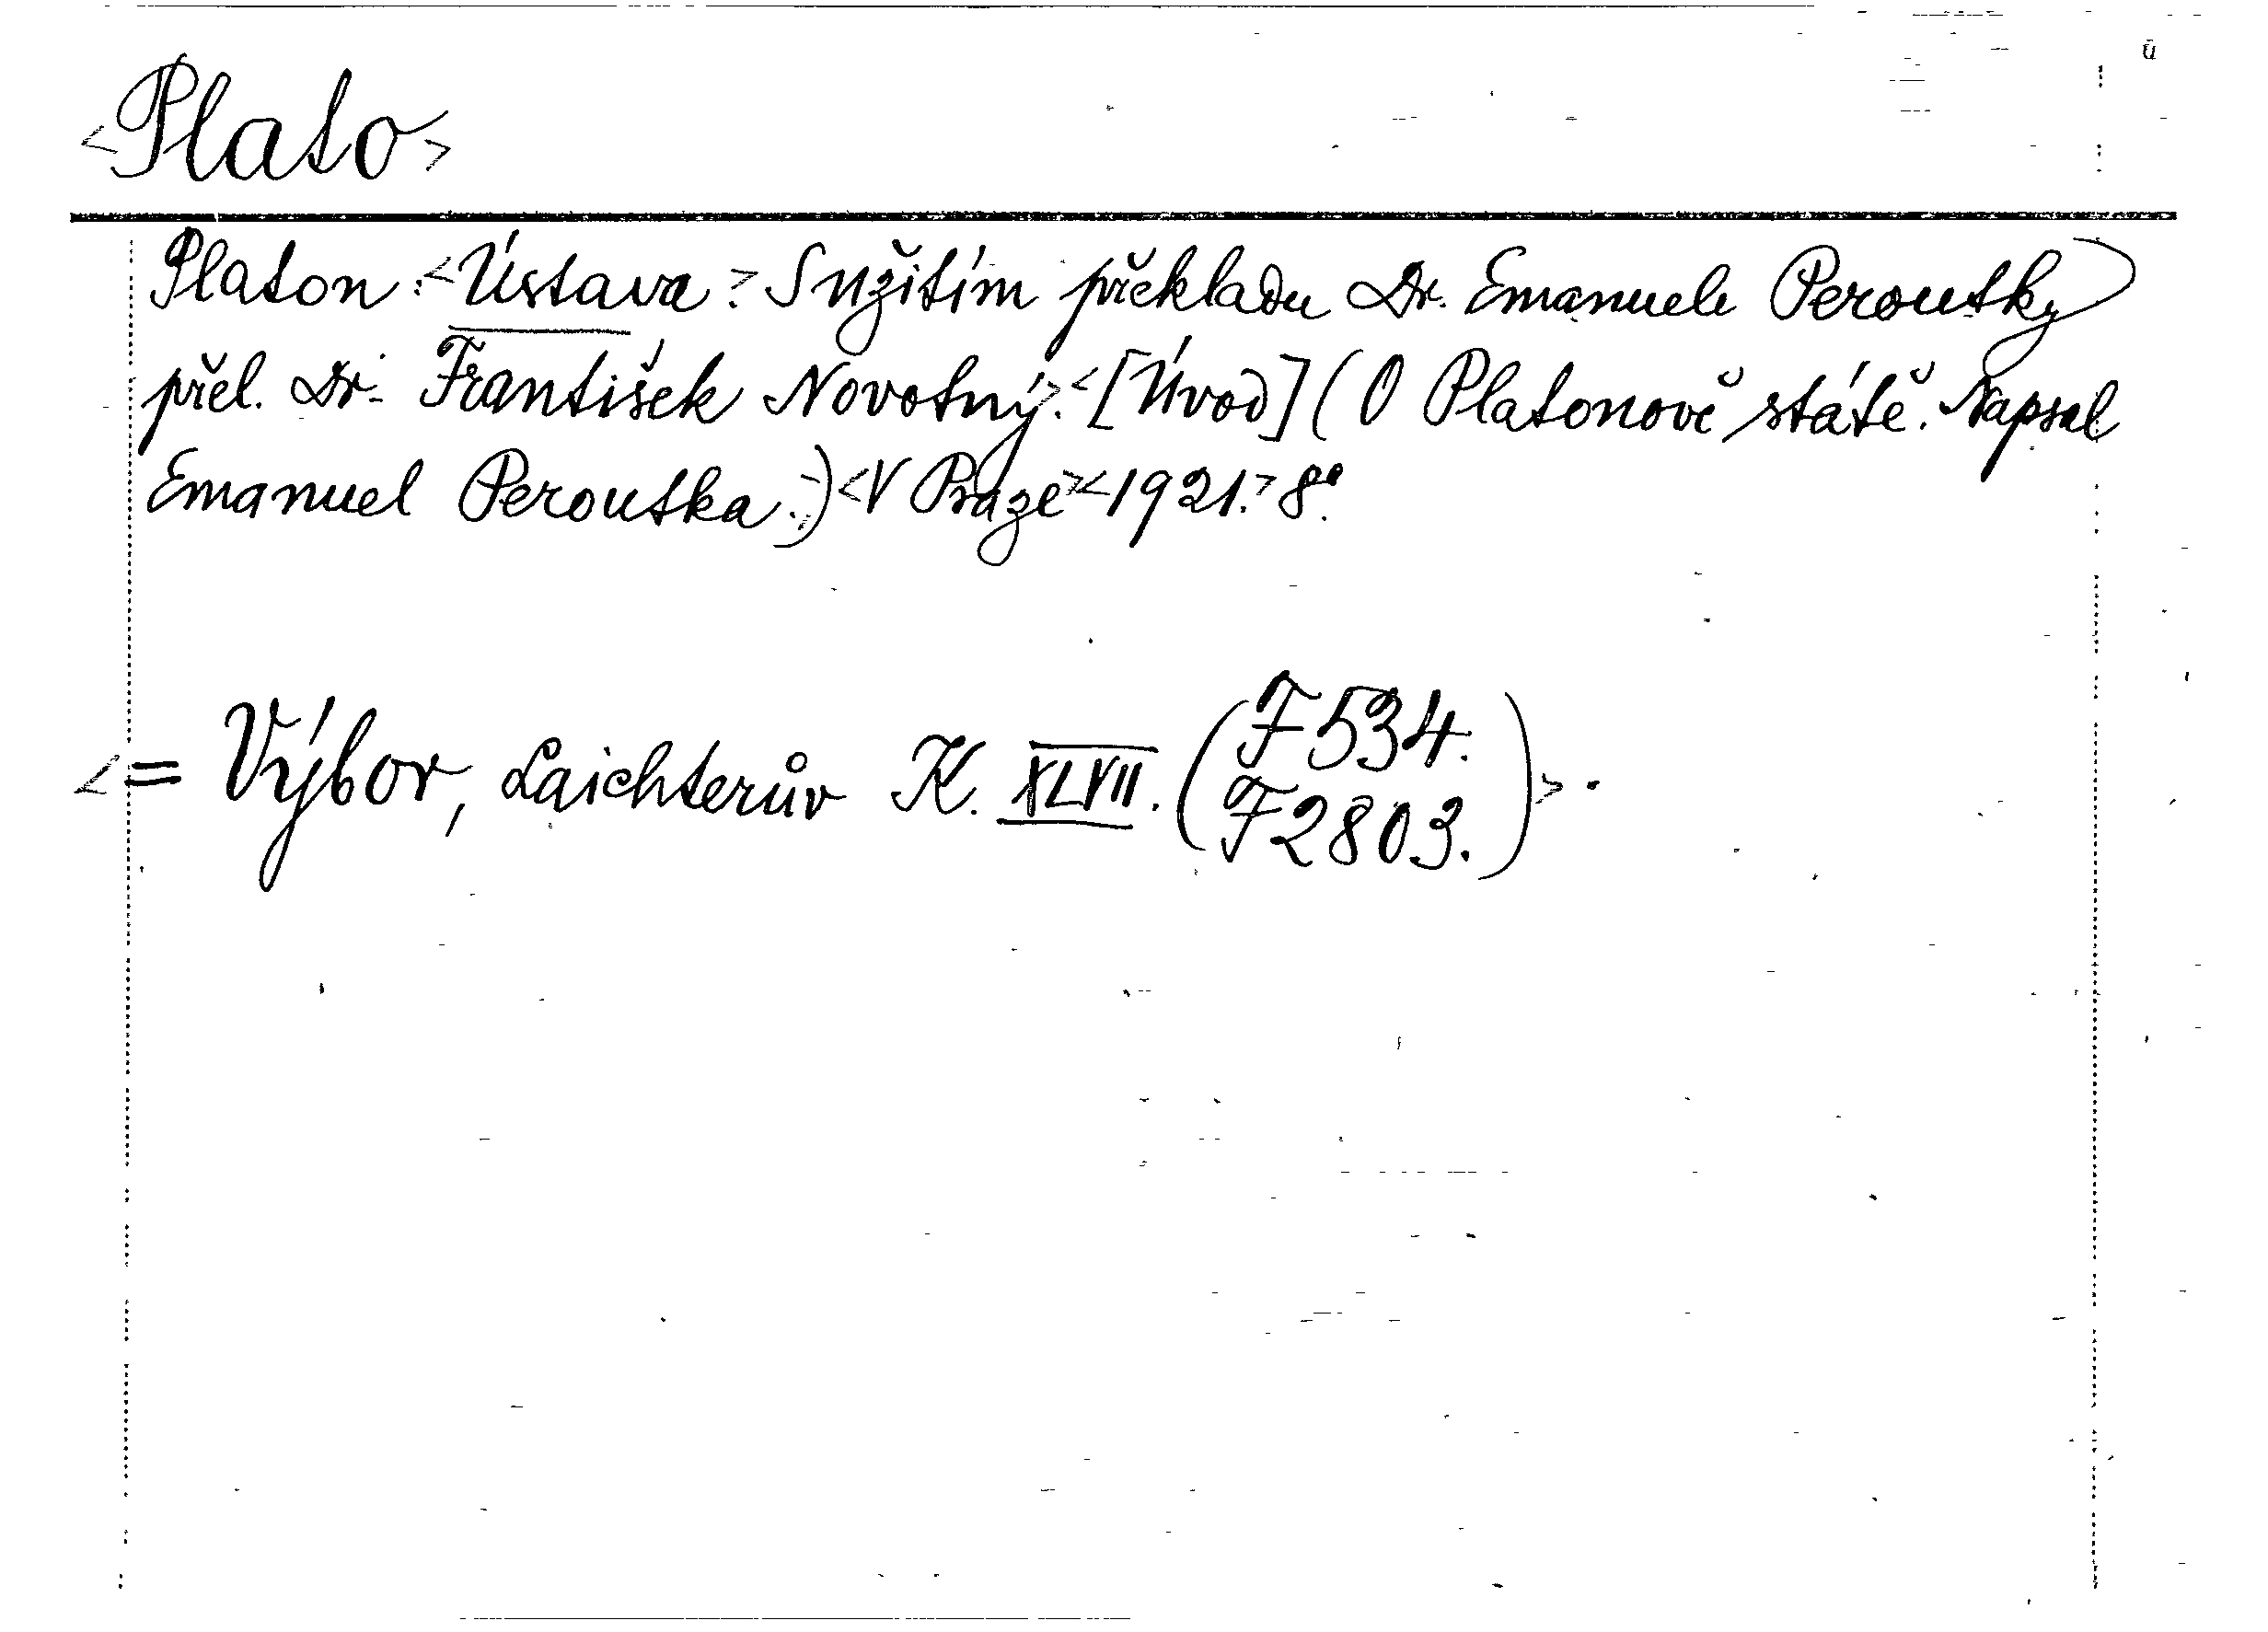 ú
<Plato>
Platon :<Ústava:> S užitím překladu Dr. Emanuele Peroutky
přel. Dr. František Novotný.> <[Úvod] (O Platonově státě. Napsal
Emanuel Peroutka.)> <V Praze> <1921.> 8°.
<= Výbor, Laichterův K. XLVII. (F 534.
F 2803.)> .